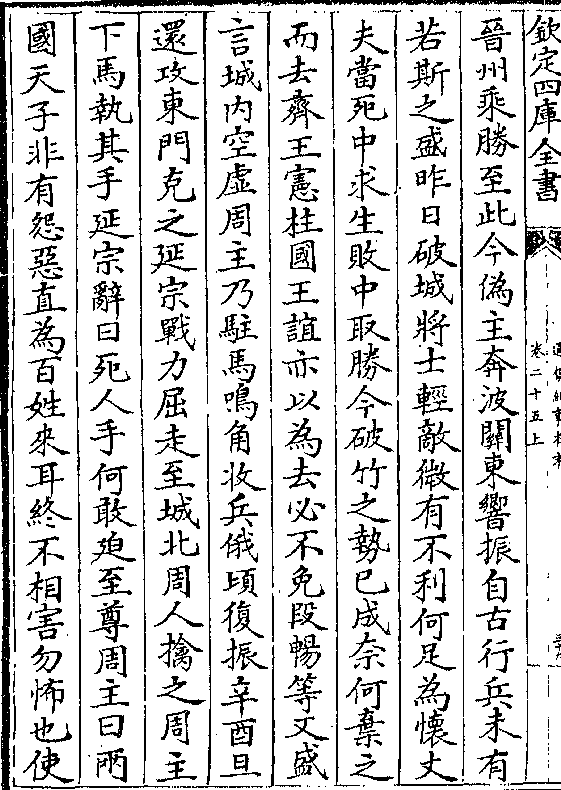 欽定四庫全書
卷二十五上
晉州乘勝至此今偽主奔波關東響振自古行兵未有
若斯之盛昨日破城將士輕敵微有不利何足為懷丈
夫當死中求生敗中取勝今破竹之勢已成奈何棄之
而去齊王憲柱國王誼亦以為去必不免段暢等又盛
言城内空虛周主乃駐馬鳴角收兵俄頃復振辛酉旦
還攻東門克之延宗戰力屈走至城北周人擒之周主
下馬執其手延宗辭曰死人手何敢廹至尊周主曰兩
國天子非有怨惡直為百姓來耳終不相害勿怖也使